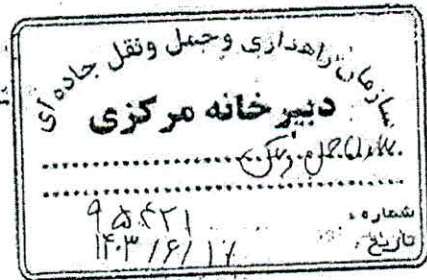 سازمان راهداری وحمل ونقل جاده ای
دبیرخانه مرکزی
شماره: ۹۵۴۲۱
تاریخ: ۱۴۰۳/۶/۱۷